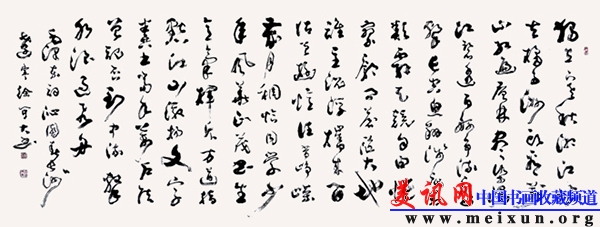 独立寒秋湘江北
去橘子洲头看万
山红遍层林尽染漫
江碧透百舸争流
鹰击长空鱼翔浅底万
类霜天竞自由怅
寥廓问苍茫大地
谁主沉浮携来百
侣曾游忆往昔峥嵘
岁月稠恰同学少
年风华正茂书生
意气挥斥方遒指
点江山激扬文字
粪土当年万户侯
曾记否到中流击
水浪遏飞舟
毛泽东词沁园春长沙
美讯网 中国书画收藏频道
www.meixun.org